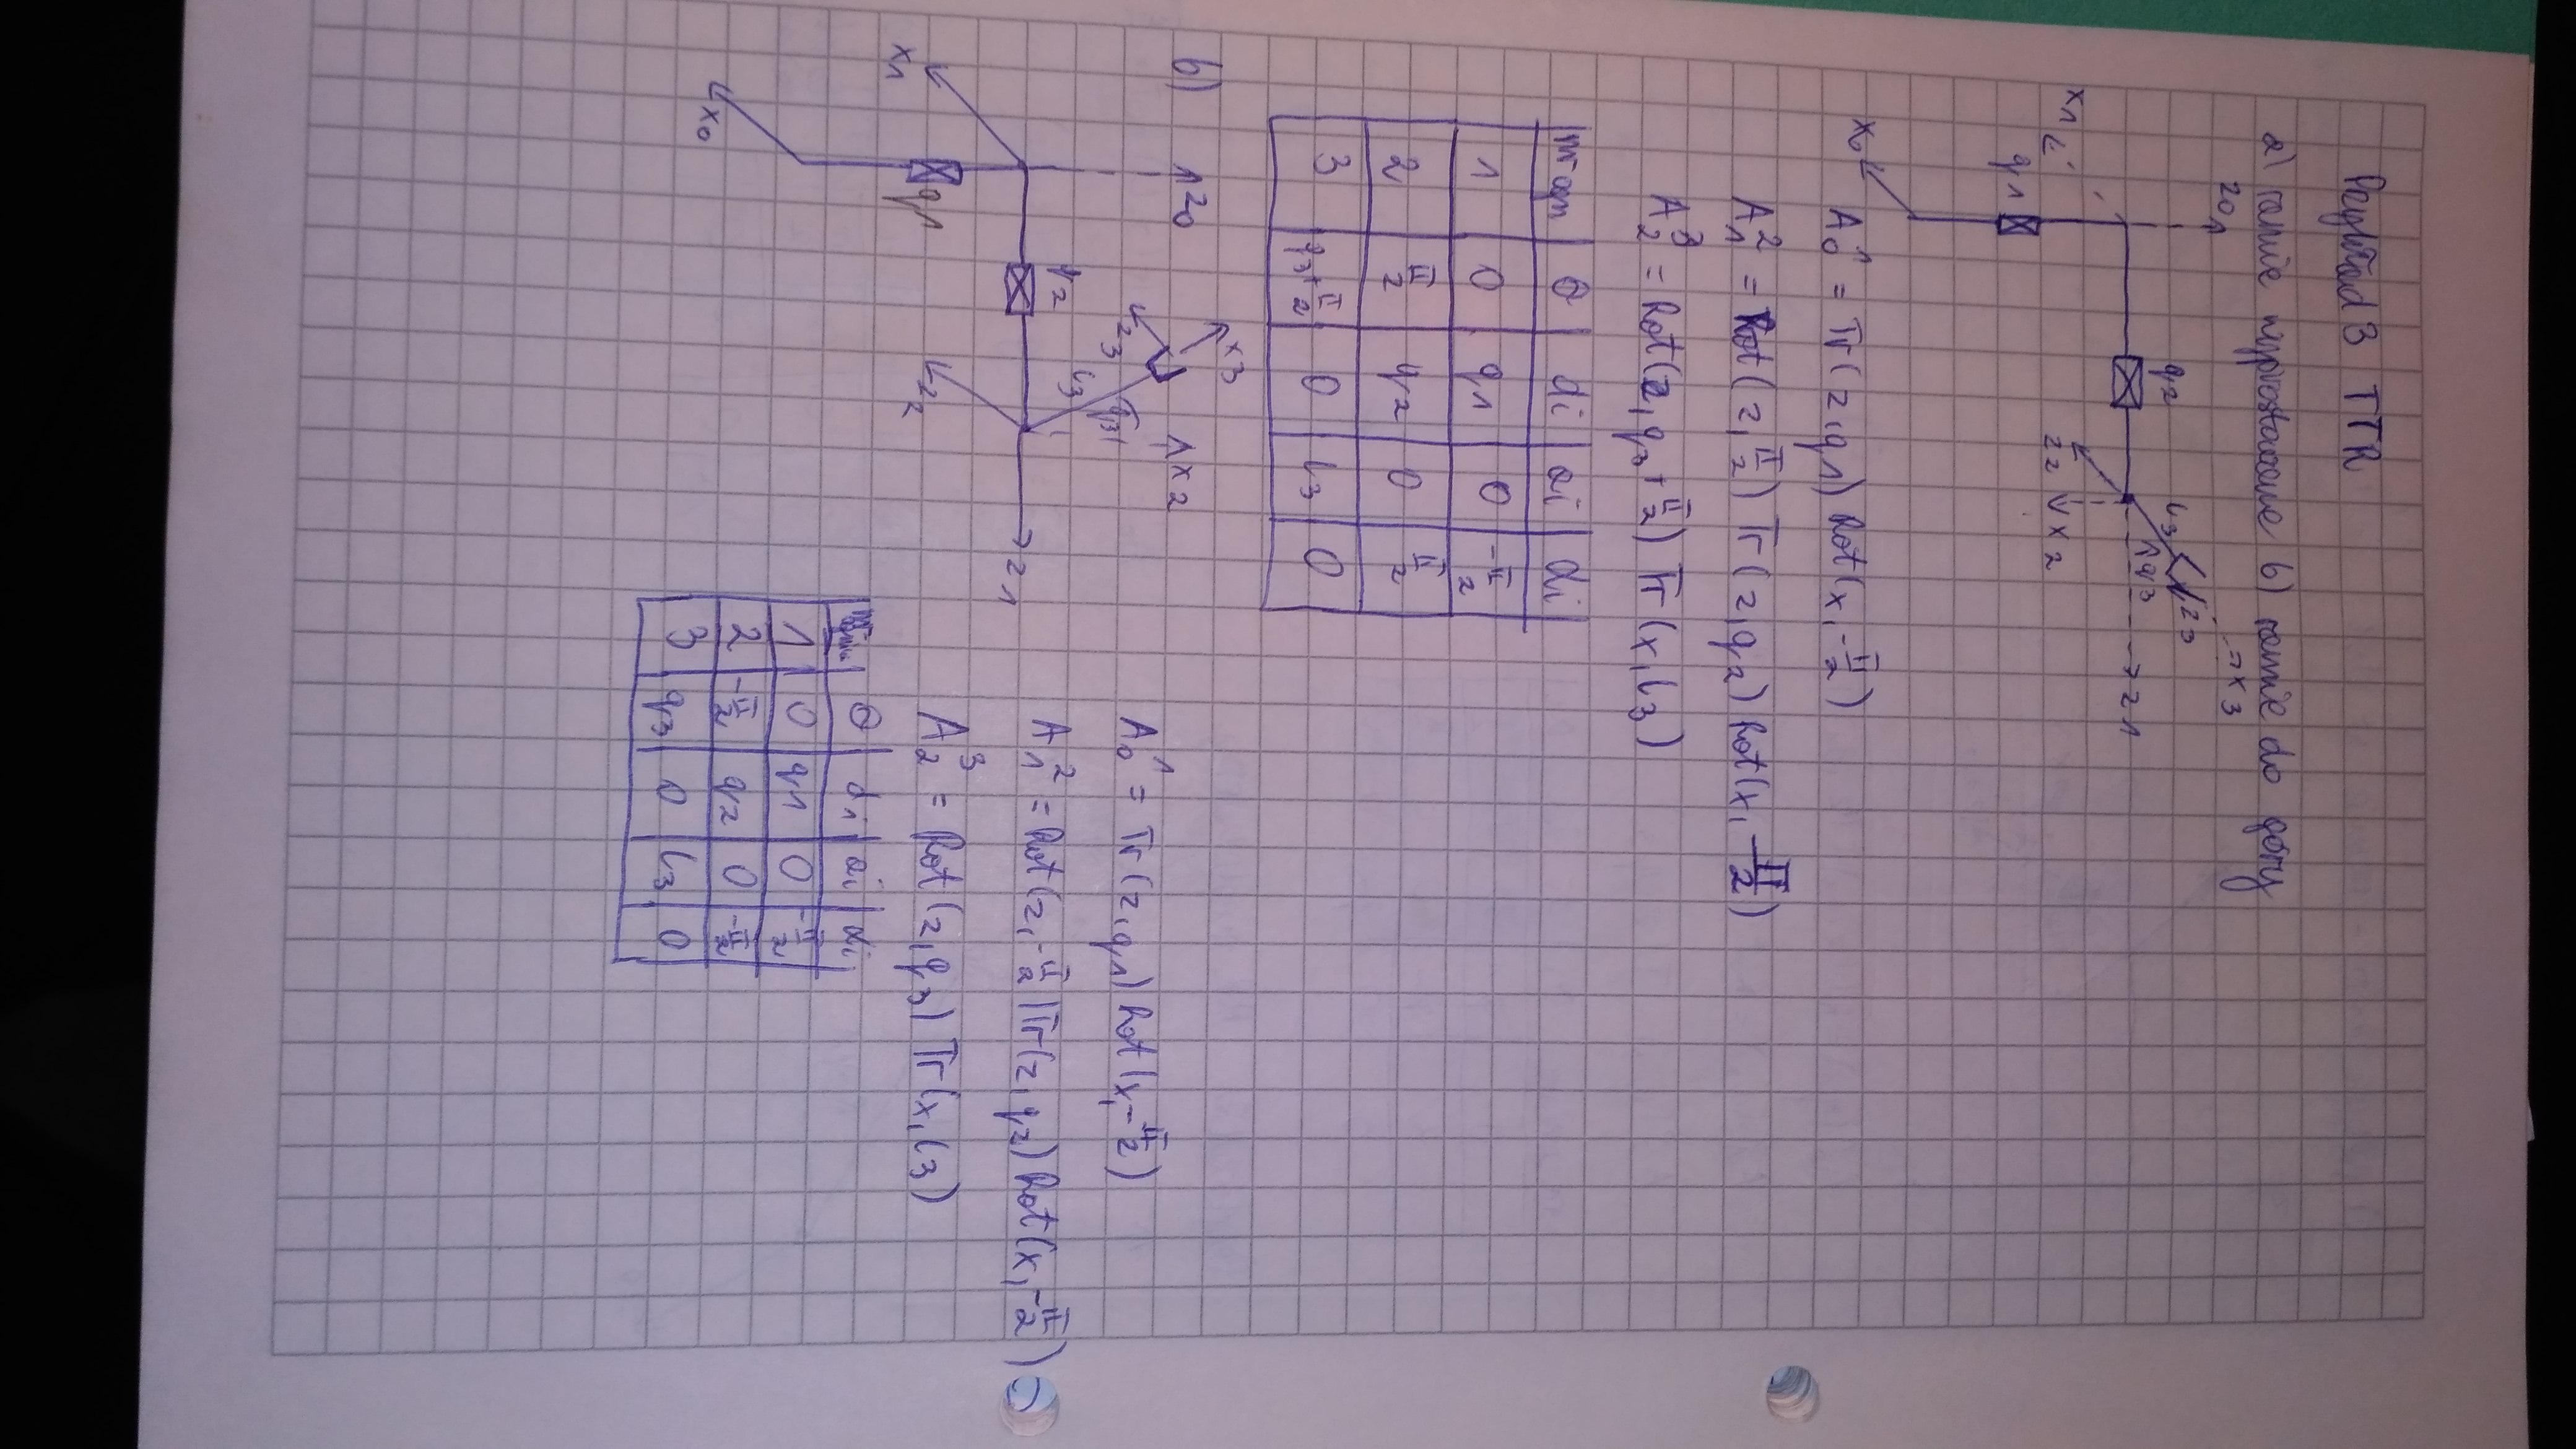 Przykład 3 TTR
a) ramie wyprostowane b) ramie do góry
z0
x1
q1
x0
q2
l3
q3
z3
x3
z1
z2
x2
A₀¹ = Tr(z,q1) Rot(x,-π/2)
A₁² = Rot(z,π/2) Tr(z,q2) Rot(x,π/2)
A₂³ = Rot(z,q3+π/2) Tr(x,l3)
θ di ai αi
1 0 q1 0 -π/2
2 π/2 q2 0 π/2
3 q3+π/2 0 l3 0
b)
z0
x2
x3
z3
l3
q3
q2
x1
q1
z2
z1
x0
A₀¹ = Tr(z,q1) Rot(x,-π/2)
A₁² = Rot(z,-π/2) Tr(z,q2) Rot(x,-π/2)
A₂³ = Rot(z,q3) Tr(x,l3)
θ di ai αi
1 0 q1 0 -π/2
2 -π/2 q2 0 -π/2
3 q3 0 l3 0